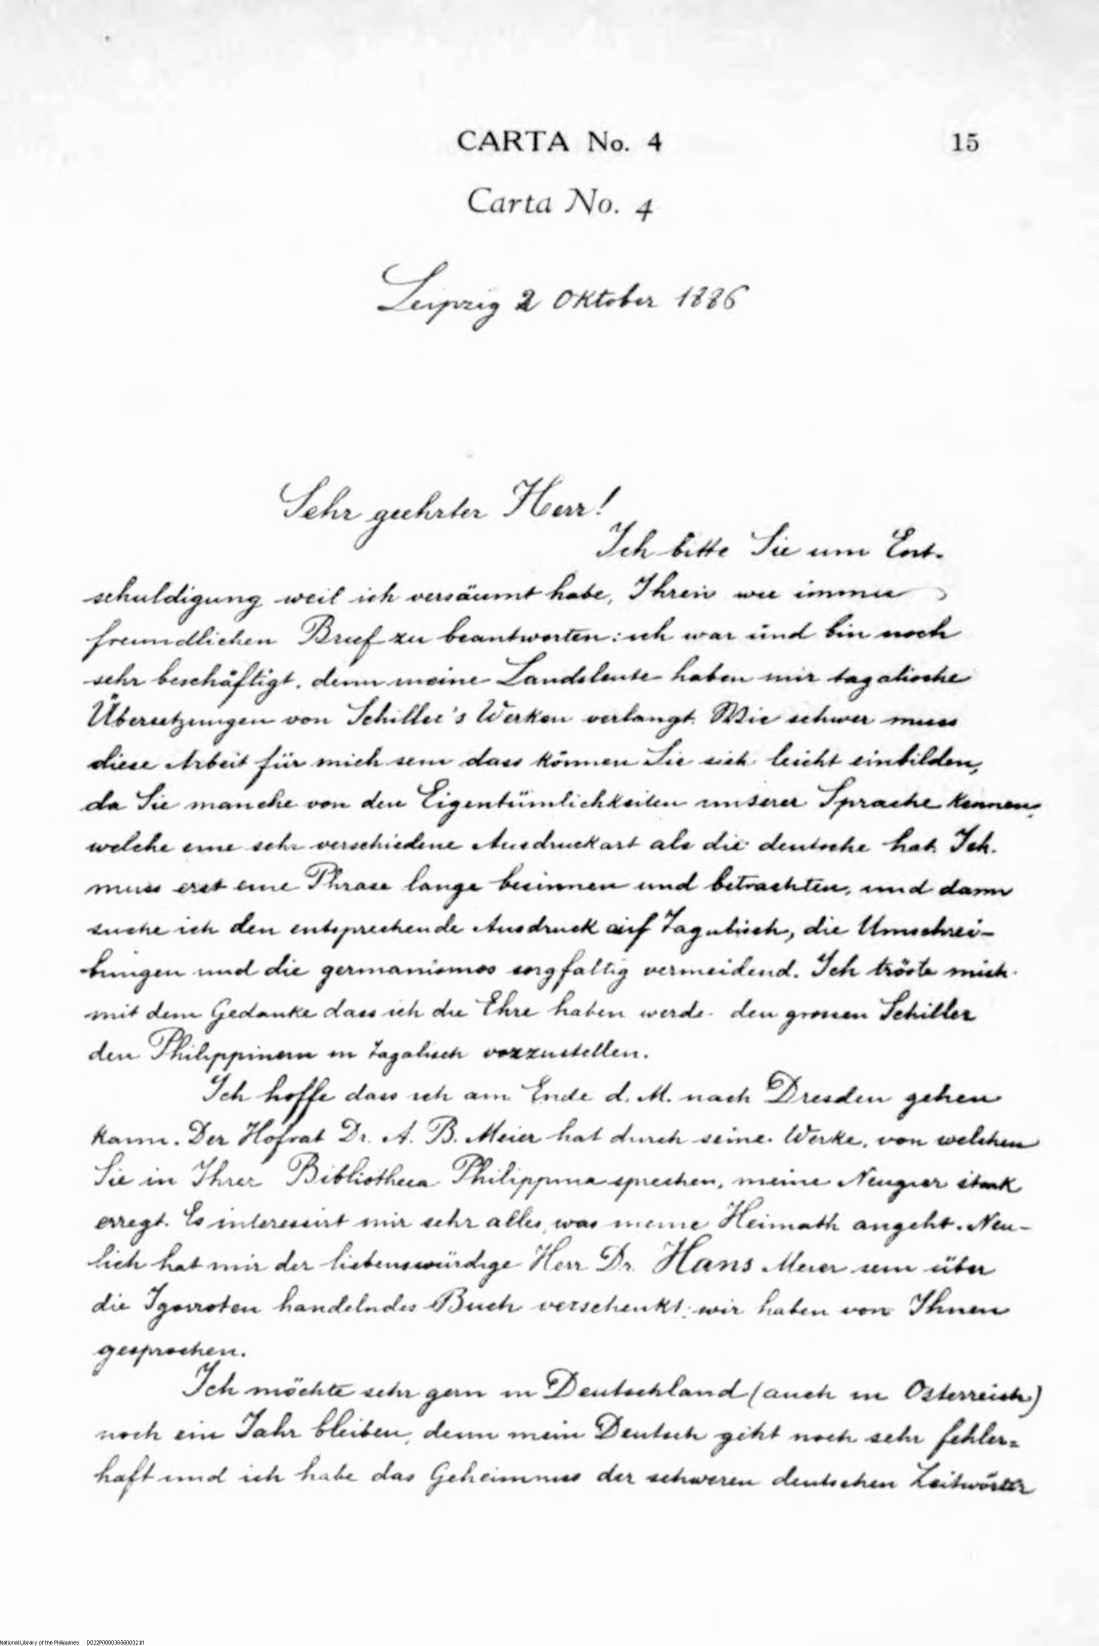 CARTA No. 4 15
Carta No. 4
Leipzig 2 Oktober 1886
Sehr geehrter Herr!
Ich bitte Sie um Ent-
schuldigung weil ich versäumt habe, Ihren wie immer
freundlichen Brief zu beantworten: ich war und bin noch
sehr beschäftigt, denn meine Landsleute haben mir tagalische
Übersetzungen von Schiller's Werken verlangt. Wie schwer muss
diese Arbeit für mich sein dass können Sie sich leicht einbilden,
da Sie manche von den Eigentümlichkeiten unserer Sprache kennen,
welche eine sehr verschiedene Ausdruckart als die deutsche hat. Ich
muss erst eine Phrase lange besinnen und betrachten, und dann
suche ich den entsprechende Ausdruck auf Tagalisch, die Umschrei-
bungen und die germanismos sorgfaltig vermeidend. Ich tröste mich
mit dem Gedanke dass ich die Ehre haben werde den grossen Schiller
den Philippinern in tagalisch vorzustellen.
Ich hoffe dass ich am Ende d. M. nach Dresden gehen
kann. Der Hofrat Dr. A. B. Meier hat durch seine Werke, von welchen
Sie in Ihrer Bibliotheca Philippina sprechen, meine Neugier stark
erregt. Es interessirt mir sehr alles, was meine Heimath angeht. Neu-
lich hat mir der liebenswürdige Herr Dr. Hans Meier sein über
die Igorroten handelndes Buch verschenkt; wir haben von Ihnen
gesprochen.
Ich möchte sehr gern in Deutschland (auch in Osterreich)
noch ein Jahr bleiben, denn mein Deutsch geht noch sehr fehler-
haft und ich habe das Geheimniss der schweren deutschen Zeitwörter
National Library of the Philippines